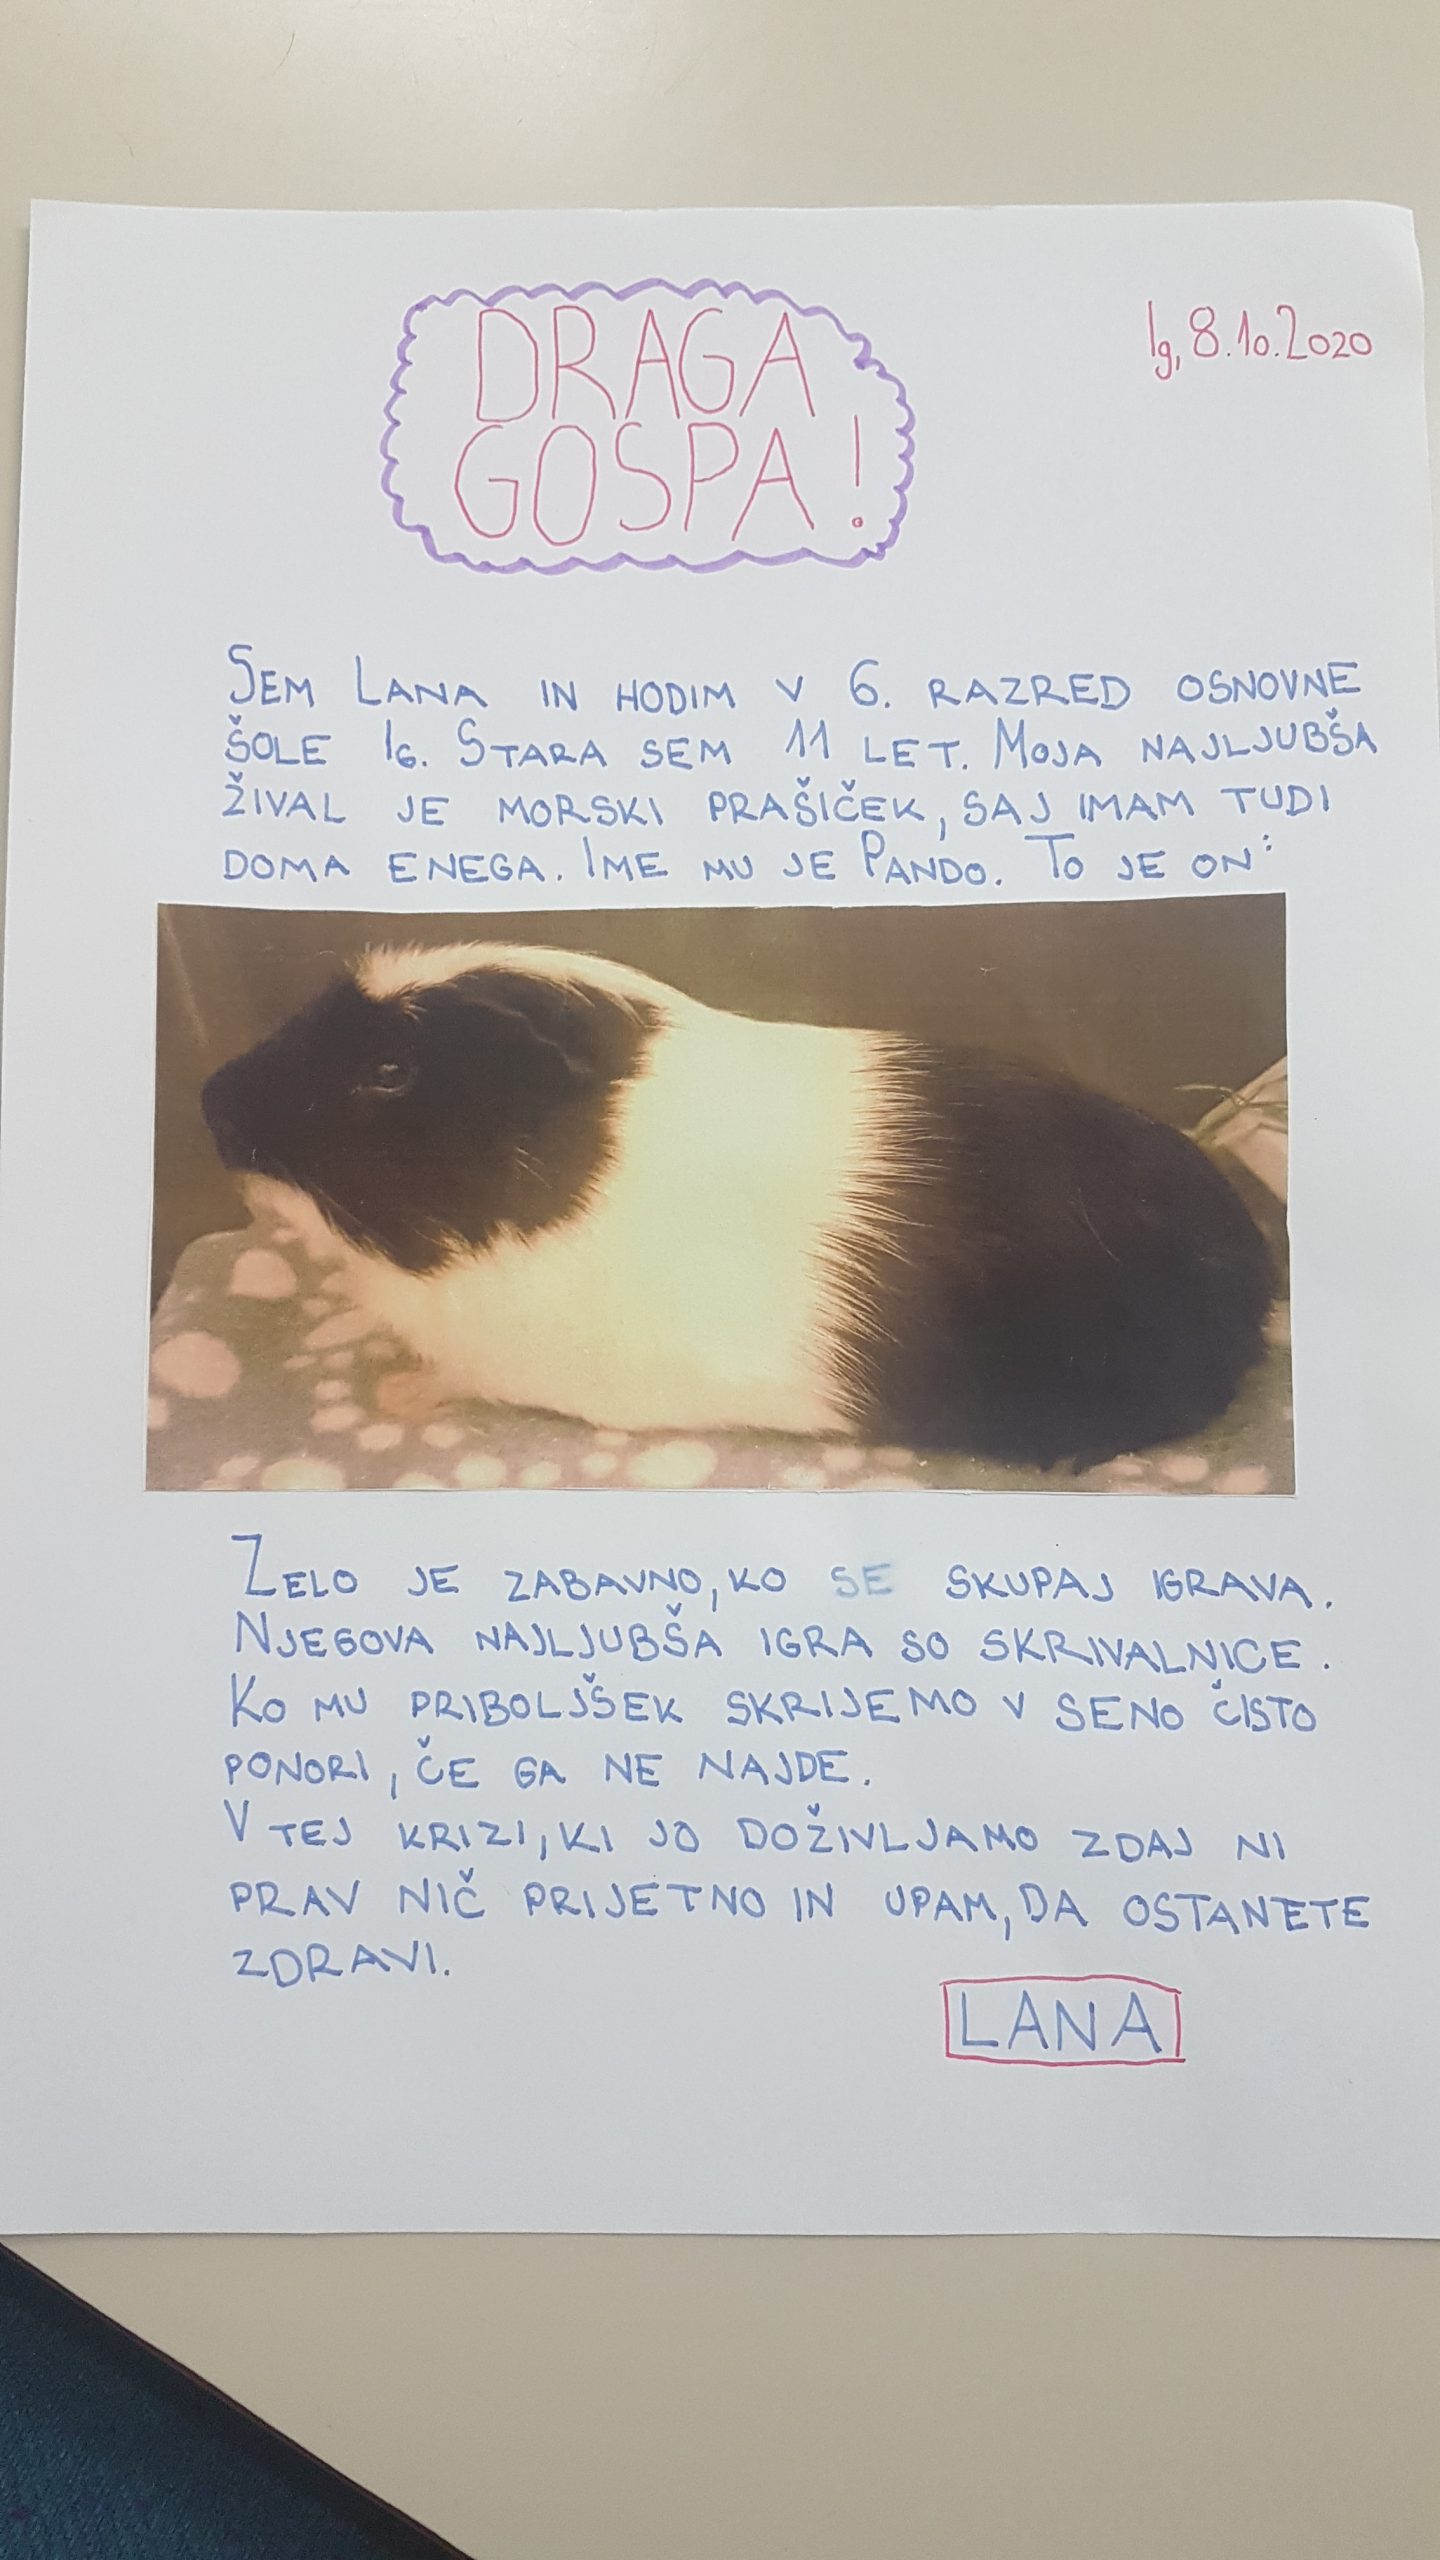 DRAGA
GOSPA!
Ig, 8.10.2020
SEM LANA IN HODIM V 6. RAZRED OSNOVNE
ŠOLE IG. STARA SEM 11 LET. MOJA NAJLJUBŠA
ŽIVAL JE MORSKI PRAŠIČEK, SAJ IMAM TUDI
DOMA ENEGA. IME MU JE PANDO. TO JE ON:
ZELO JE ZABAVNO, KO SE SKUPAJ IGRAVA.
NJEGOVA NAJLJUBŠA IGRA SO SKRIVALNICE.
KO MU PRIBOLJŠEK SKRIJEMO V SENO ČISTO
PONORI, ČE GA NE NAJDE.
V TEJ KRIZI, KI JO DOŽIVLJAMO ZDAJ NI
PRAV NIČ PRIJETNO IN UPAM, DA OSTANETE
ZDRAVI.
LANA